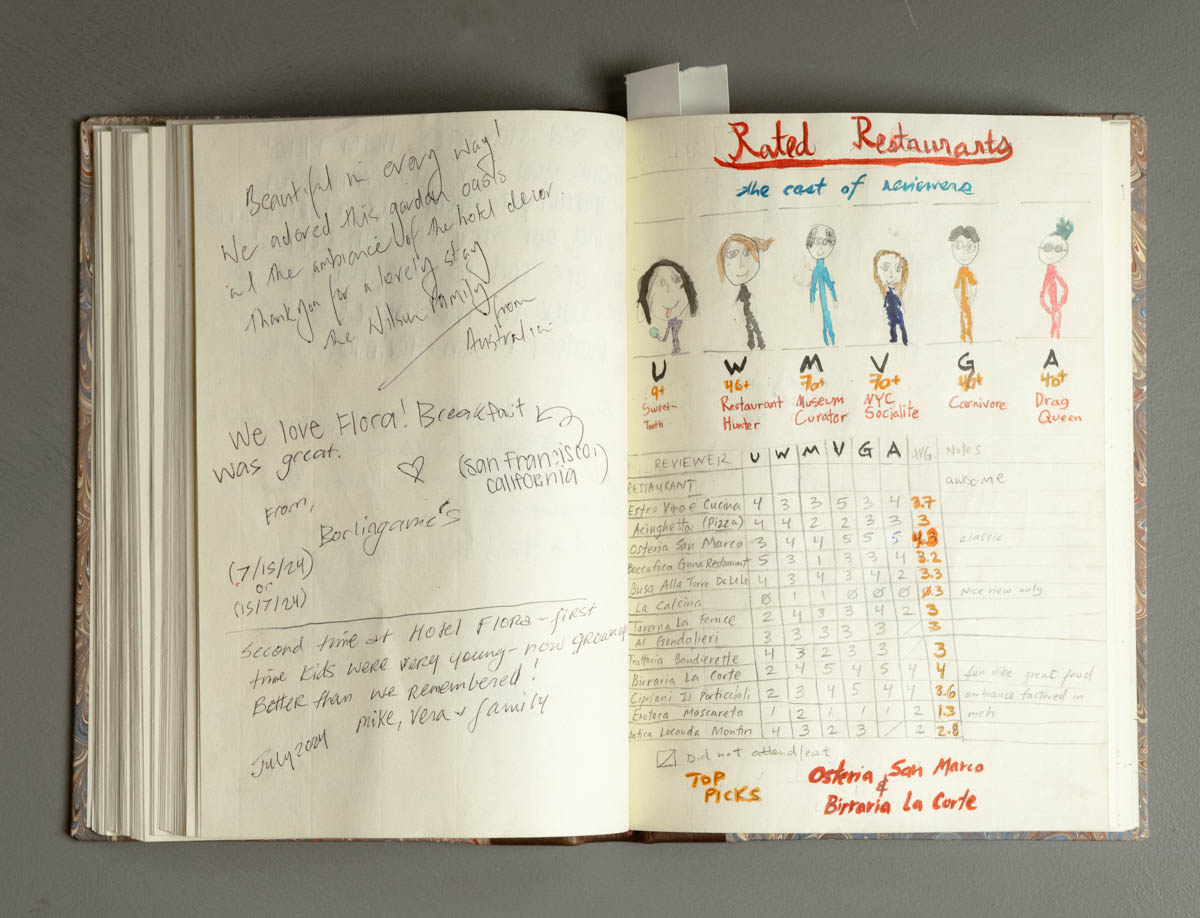 Beautiful in every way!
We adored this garden oasis
and the ambiance of the hotel decor.
Thankyou for a lovely stay
the Wilson Family
from
Australia
We love Flora! Breakfast
was great.
(San Francisco,
California)
From,
Borlingame's
(7/15/24)
or
(15/7/24)
Second time at Hotel Flora - first
time kids were very young - now grown up
Better than we remembered!
Mike, Vera + family
July 2024
Rated Restaurants
the cast of reviewers
U W M V G A
9+ 46+ 70+ 70+ 40+ 40+
Sweet-Tooth Restaurant Hunter Museum Curator NYC Socialite Carnivore Drag Queen
REVIEWER U W M V G A AVG. Notes
RESTAURANT awsome
Estro Vino e Cucina 4 3 3 5 3 4 3.7
Aciughetta (Pizza) 4 4 2 2 3 3 3
Osteria San Marco 3 4 4 5 5 5 4.3 classic
Beccafico Restaurant 5 3 1 3 3 4 3.2
Busa Alla Torre Da Lele 4 3 4 3 4 2 3.3
La Calcina 0 1 1 0 0 0 0.3 Nice view only
Taverna La Fenice 2 4 3 3 4 2 3
Al Gondolieri 3 3 3 3 3 3
Trattoria Bandierette 4 3 2 3 3 3
Birraria La Corte 2 4 5 4 5 4 4 fun vibe great food
Cipriani Il Porticcioli 2 3 4 5 4 4 3.6 ambiance factored in
Enoteca Mascareta 1 2 1 1 1 2 1.3 meh
Antica Locanda Montin 4 3 2 3 2 2.8
Did not attend/eat
TOP PICKS
Osteria San Marco
&
Birraria La Corte